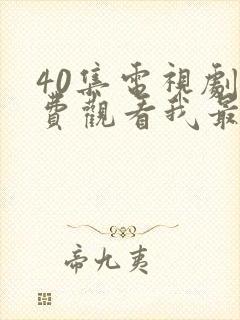 40集電視劇
費觀看我最
帝九夷